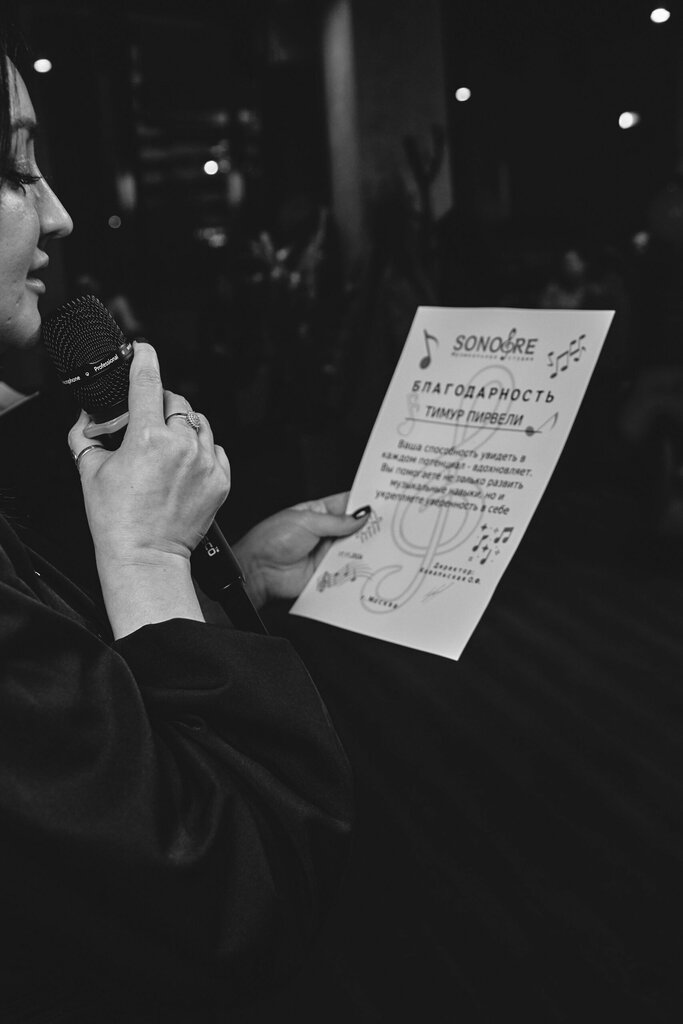 SONORE
музыкальная студия
БЛАГОДАРНОСТЬ
ТИМУР ПИРВЕЛИ
Ваша способность увидеть в
каждом потенциал - вдохновляет.
Вы помогаете не только развить
музыкальные навыки, но и
укрепляете уверенность в себе
Директор:
Ковальская О.Ф.
г. Москва
Professional